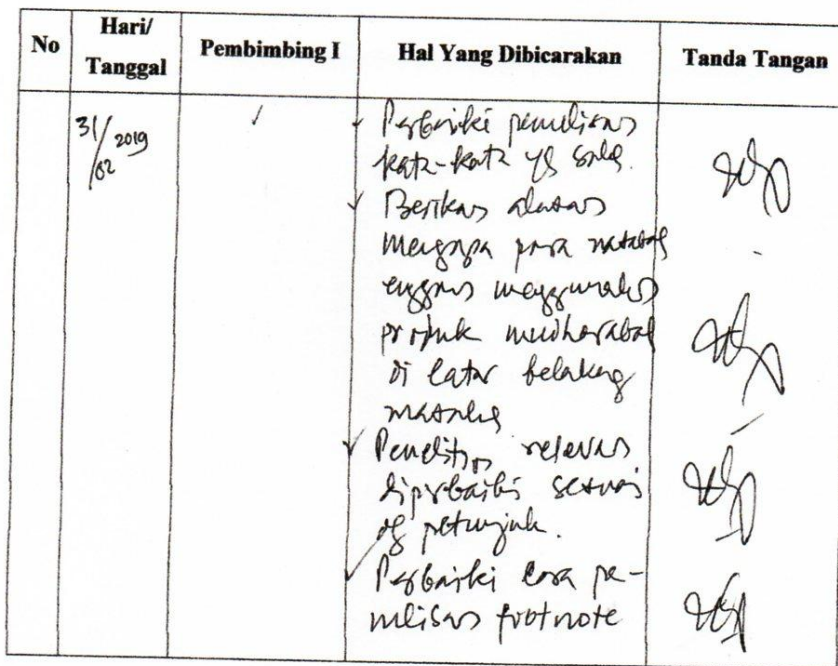 No Hari/ Tanggal Pembimbing I Hal Yang Dibicarakan Tanda Tangan
31/02 2019
Perbaiki penulisan
kata-kata yg salah.
Berikan alasan
mengapa para nasabah
enggan menggunakan
produk mudharabah
di latar belakang
masalah
Penelitian relevan
diperbaiki sesuai
dg petunjuk.
Perbaiki cara pe-
nulisan footnote